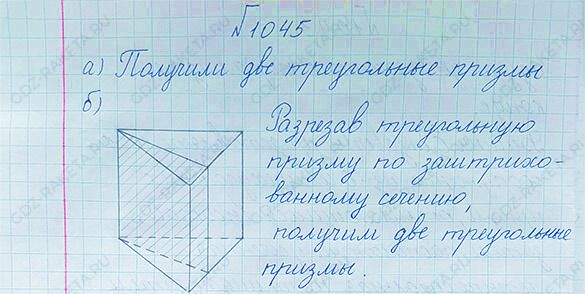 №1045
а) Получили две треугольные призмы
б)
Разрезав треугольную
призму по заштрихо-
ванному сечению,
получим две треугольные
призмы.
GDZ-RAKETA.RU